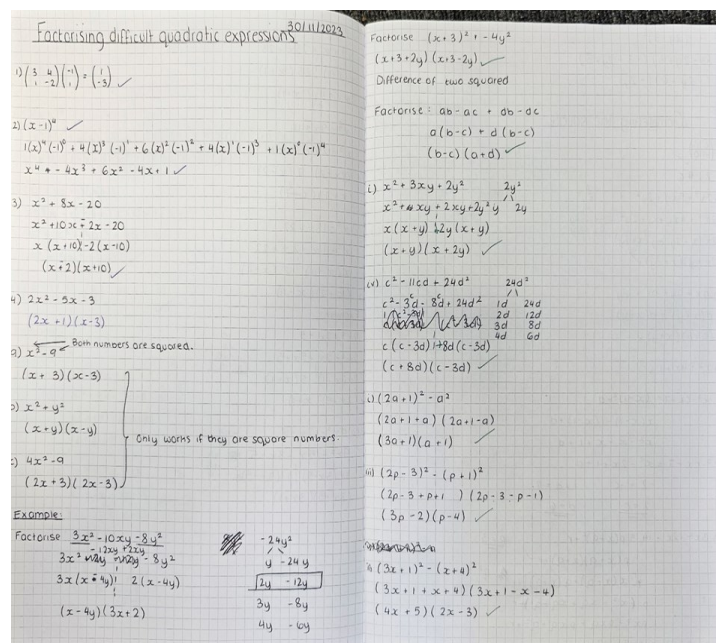 Factorising difficult quadratic expressions 30/11/2023
1) (3 4 / 1 -2)(-1 / 1) = (1 / -3) ✓
2) (x-1)⁴ ✓
1(x)⁴(-1)⁰ + 4(x)³(-1)¹ + 6(x)²(-1)² + 4(x)¹(-1)³ + 1(x)⁰(-1)⁴
x⁴ + - 4x³ + 6x² - 4x + 1 ✓
3) x² + 8x - 20
x² + 10x - 2x - 20
x (x+10) - 2(x-10)
(x-2)(x+10) ✓
4) 2x² - 5x - 3
(2x + 1)(x-3)
a) x² - 9 ← Both numbers are squared.
(x + 3)(x-3)
b) x² + y²
(x+y)(x-y)
Only works if they are square numbers.
c) 4x² - 9
(2x+3)(2x-3)
Example:
Factorise 3x² - 10xy - 8y²
-12xy +2xy
3x² - 8y²
3x(x-4y) 2(x-4y)
(x-4y)(3x+2)
-24y²
y -24y
2y -12y
3y -8y
4y -6y
Factorise (x+3)² + - 4y²
(x+3+2y)(x+3-2y) ✓
Difference of two squared
Factorise: ab - ac + db - dc
a(b-c) + d(b-c)
(b-c)(a+d) ✓
i) x² + 3xy + 2y² 2y²
x² + xy + 2xy + 2y² y 2y
x(x+y) +2y(x+y)
(x+y)(x+2y) ✓
iv) c² - 11cd + 24d² 24d²
c² - 3cd - 8cd + 24d² 1d 24d
2d 12d
3d 8d
4d 6d
c(c-3d) +8d(c-3d)
(c+8d)(c-3d) ✓
i) (2a+1)² - a²
(2a+1+a)(2a+1-a)
(3a+1)(a+1) ✓
iii) (2p-3)² - (p+1)²
(2p-3+p+1)(2p-3-p-1)
(3p-2)(p-4) ✓
(3x+1)² - (x+4)²
(3x+1+x+4)(3x+1-x-4)
(4x+5)(2x-3) ✓